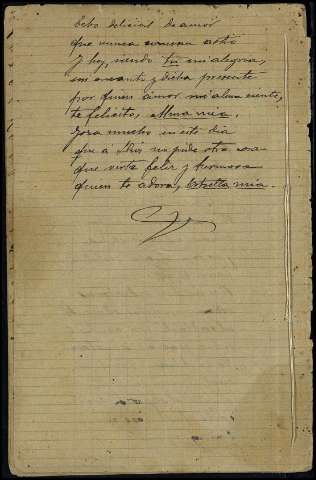 delicial de amor
que nunca
Y hoy, siendo Tú mi alegria,
mi encanto y dicha presente
por quien amor mi alma siente,
te felicito, Alma mia.
Goza mucho en este dia
que a Dios no pide otra cosa
que verte feliz y hermosa
quien te adora, Estrella mia.